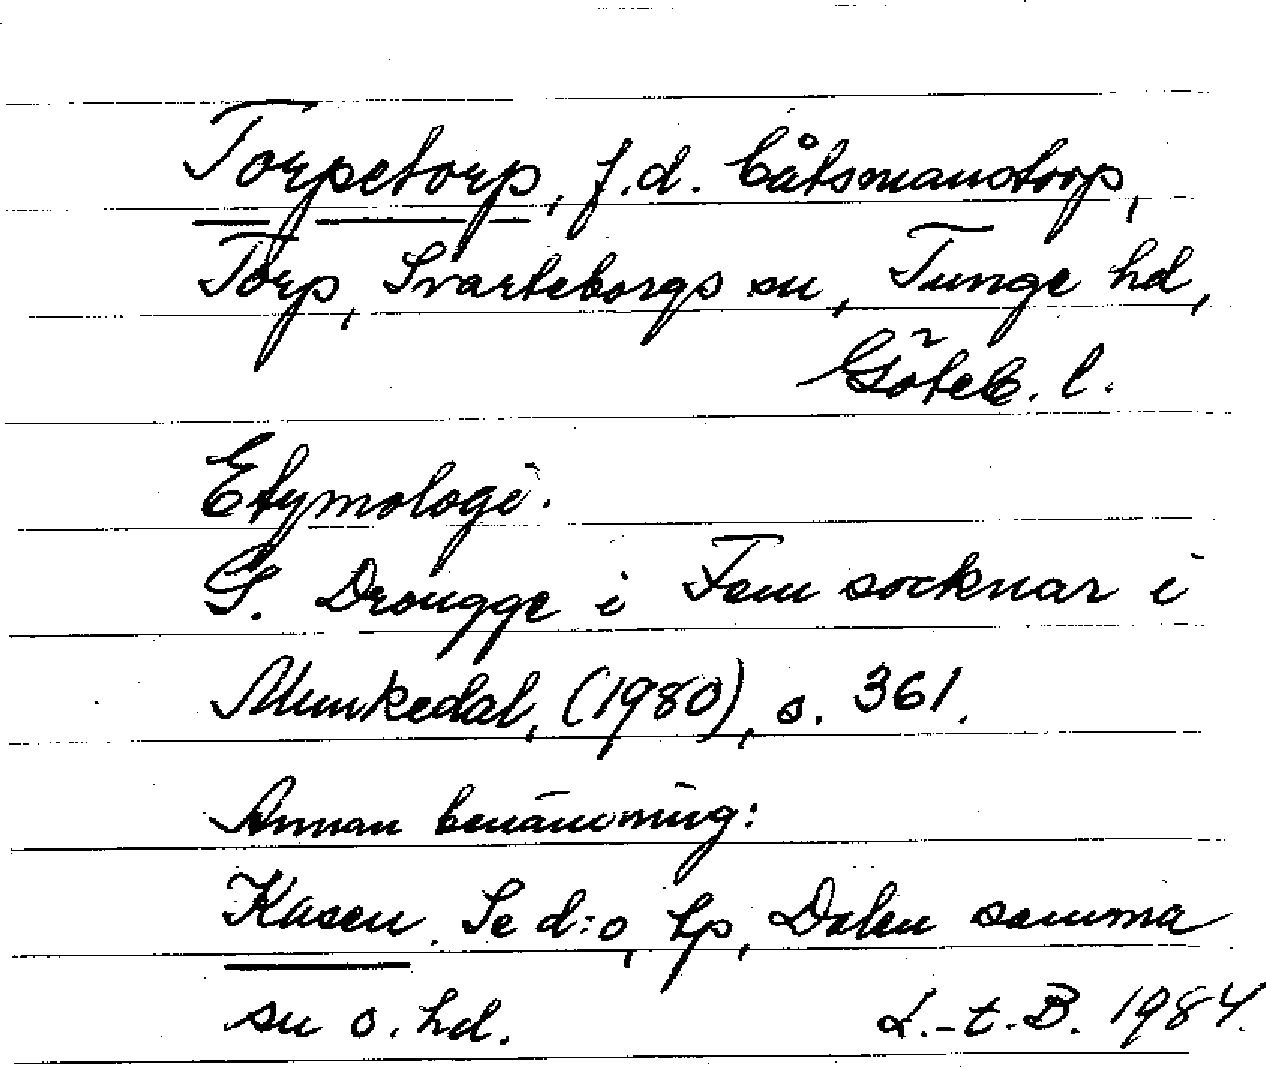 Torpetorp, f.d. båtsmanstorp,
Torp, Svarteborgs sn, Tunge hd,
Göteb. l.
Etymologi.
G. Drougge i Fem socknar i
Munkedal, (1980), s. 361.
Annan benämning:
Kasen. Se d:o, tp, Dalen samma
sn o. hd. L.-t.B. 1984.